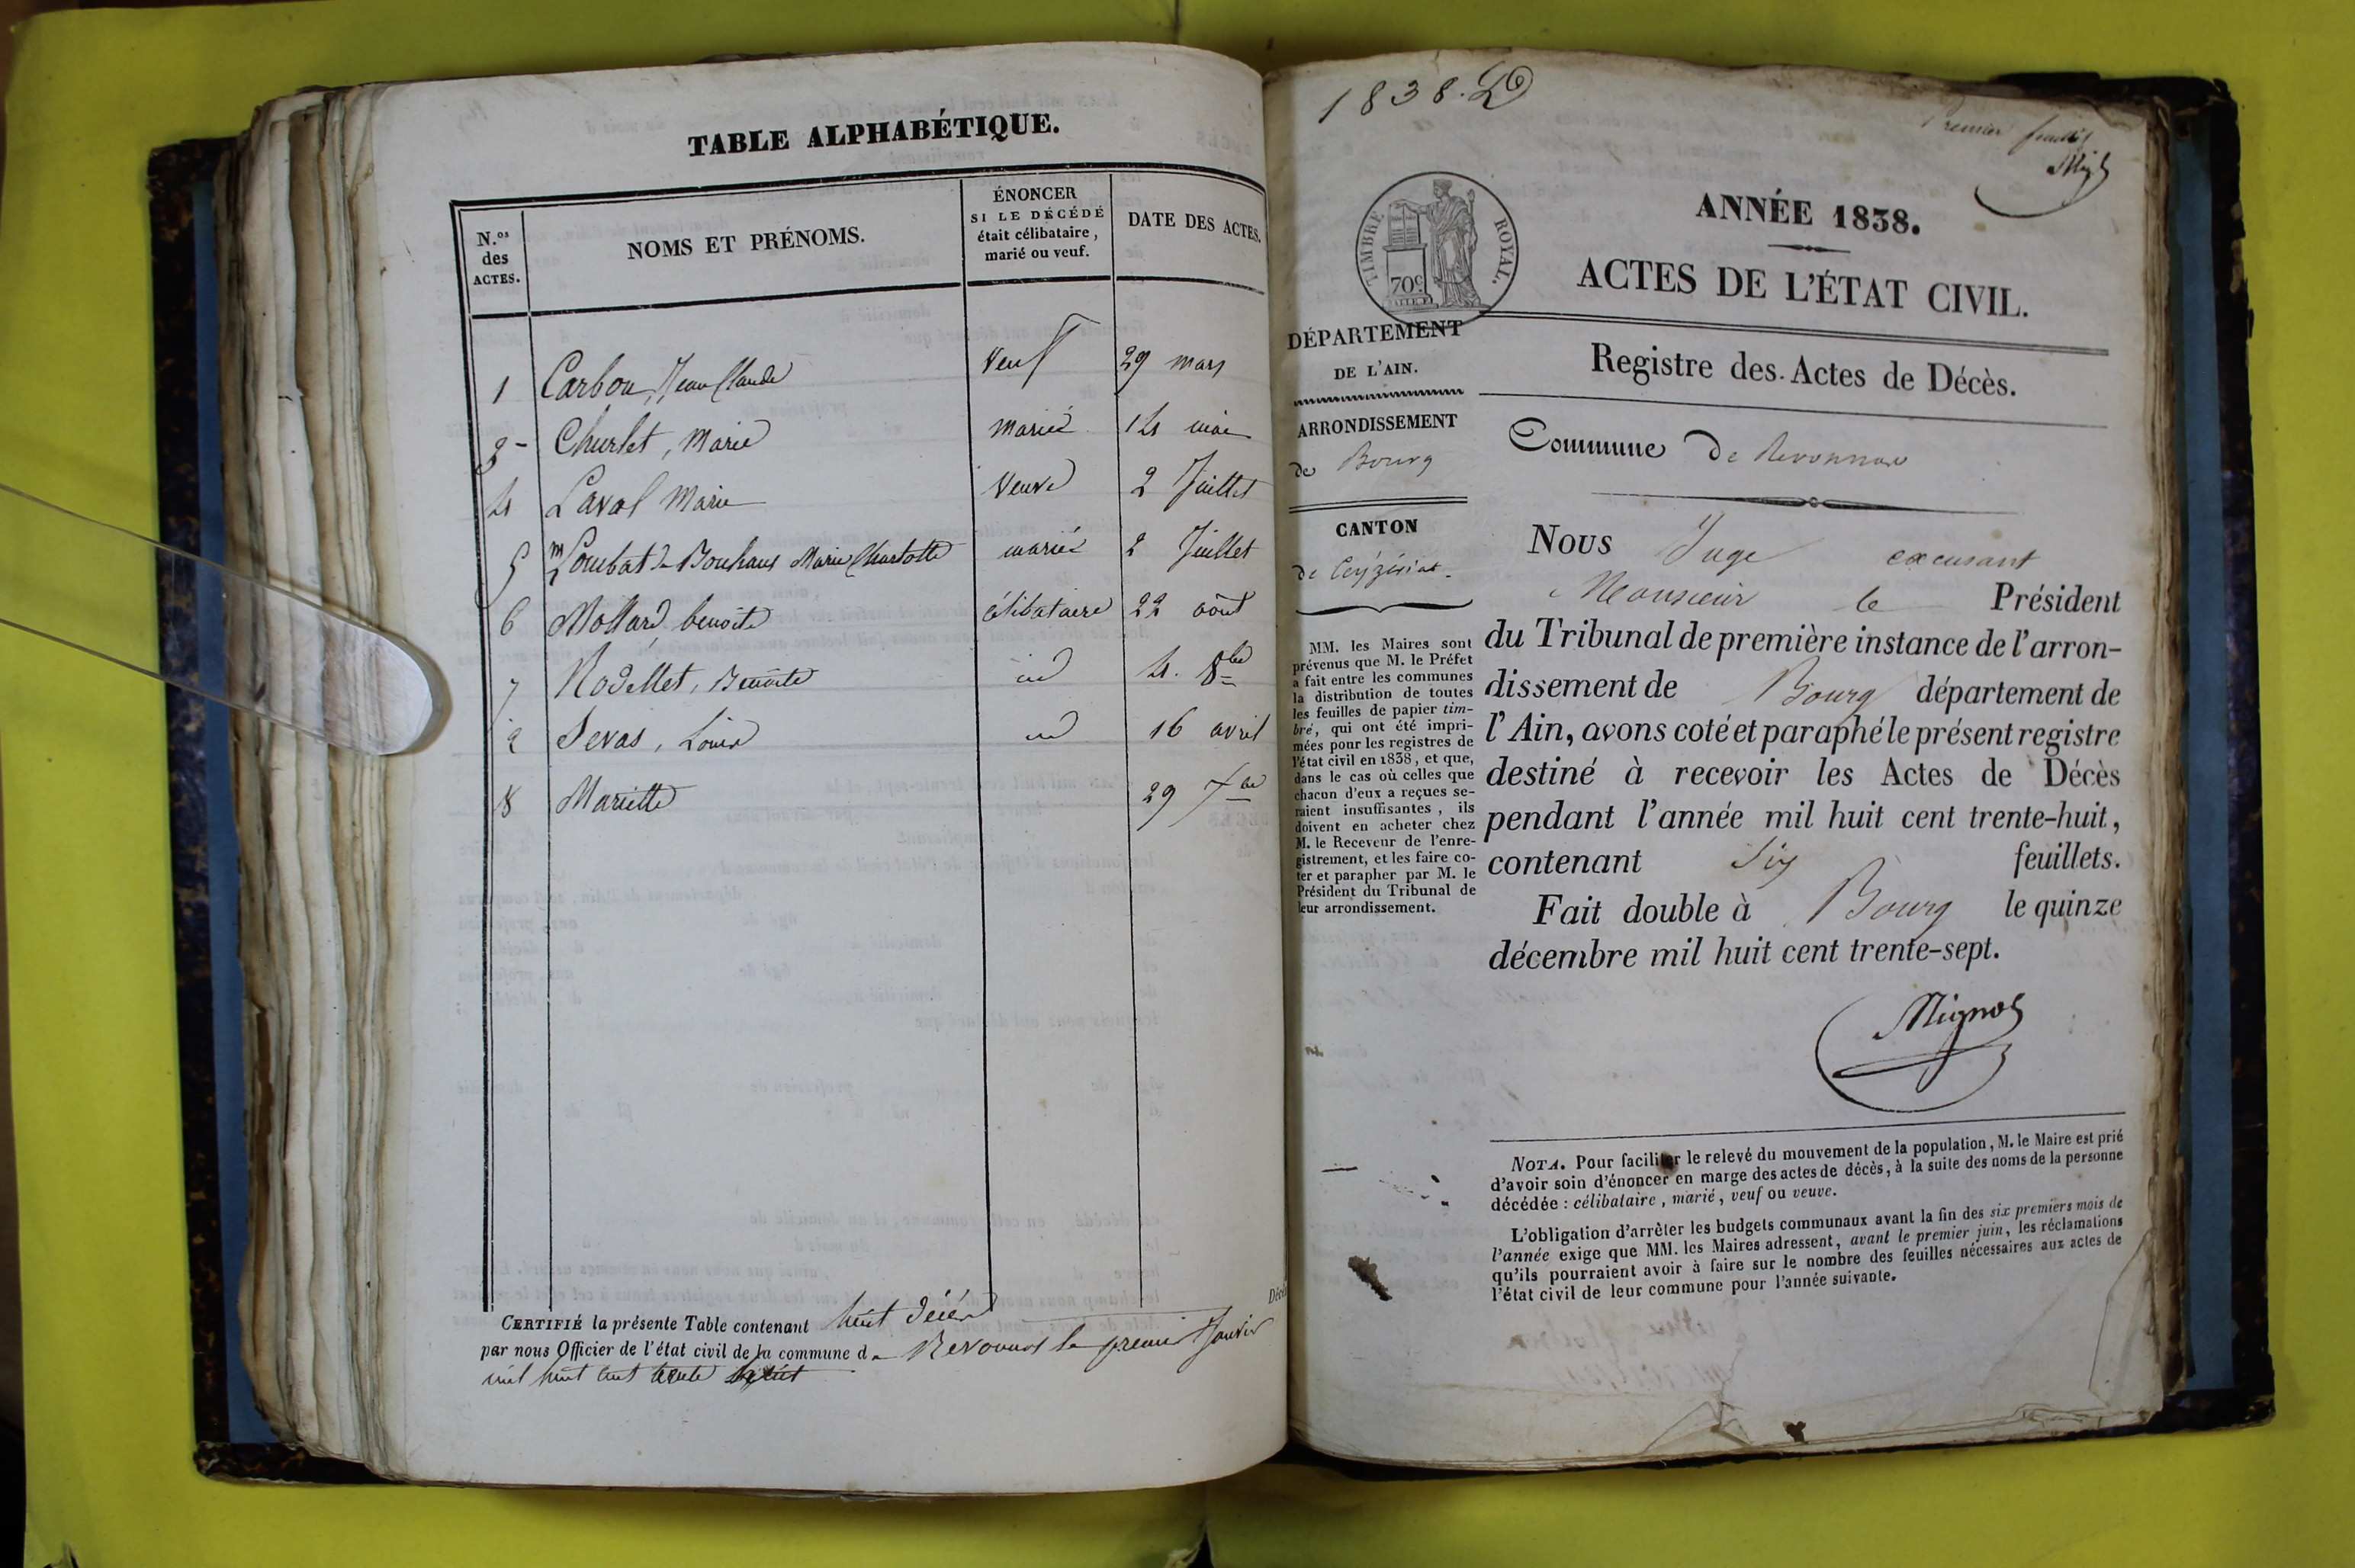 TABLE ALPHABÉTIQUE.
N.os des ACTES.
NOMS ET PRÉNOMS.
ÉNONCER
SI LE DÉCÉDÉ
était célibataire,
marié ou veuf.
DATE DES ACTES.
1 Carbon, Jean Claude veuf 29 mars
3 - Churlet, Marie mariée 14 mai
4 Laval Marie veuve 2 Juillet
5 Loubat de Bouhans Marie Charlotte mariée 2 Juillet
6 Mollard, benoite célibataire 22 août
7 Rodellet, Benoite id 4. 8bre
2 Sevas, Louis id 16 avril
8 Mariette 29 7bre
CERTIFIÉ la présente Table contenant huit décès
par nous Officier de l'état civil de la commune de Revonnas le premier Janvier
mil huit cent trente huit
1838. D
Premier feuillet
Mig
TIMBRE ROYAL.
70c
ANNÉE 1838.
ACTES DE L'ÉTAT CIVIL.
DÉPARTEMENT
DE L'AIN.
ARRONDISSEMENT
de Bourg
CANTON
de Ceyzériat.
MM. les Maires sont
prévenus que M. le Préfet
a fait entre les communes
la distribution de toutes
les feuilles de papier tim-
bré, qui ont été impri-
mées pour les registres de
l'état civil en 1838, et que,
dans le cas où celles que
chacun d'eux a reçues se-
raient insuffisantes, ils
doivent en acheter chez
M. le Receveur de l'enre-
gistrement, et les faire co-
ter et parapher par M. le
Président du Tribunal de
leur arrondissement.
Registre des Actes de Décès.
Commune de Revonnas
Nous Juge excusant
Monsieur le Président
du Tribunal de première instance de l'arron-
dissement de Bourg département de
l'Ain, avons coté et paraphé le présent registre
destiné à recevoir les Actes de Décès
pendant l'année mil huit cent trente-huit,
contenant Six feuillets.
Fait double à Bourg le quinze
décembre mil huit cent trente-sept.
Mignot
NOTA. Pour faciliter le relevé du mouvement de la population, M. le Maire est prié
d'avoir soin d'énoncer en marge des actes de décès, à la suite des noms de la personne
décédée : célibataire, marié, veuf ou veuve.
L'obligation d'arrêter les budgets communaux avant la fin des six premiers mois de
l'année exige que MM. les Maires adressent, avant le premier juin, les réclamations
qu'ils pourraient avoir à faire sur le nombre des feuilles nécessaires aux actes de
l'état civil de leur commune pour l'année suivante.